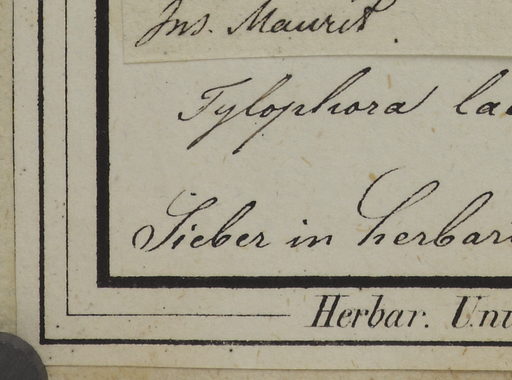 Ins. Maurit.
Tylophora
Sieber in herbar
Herbar. Uni